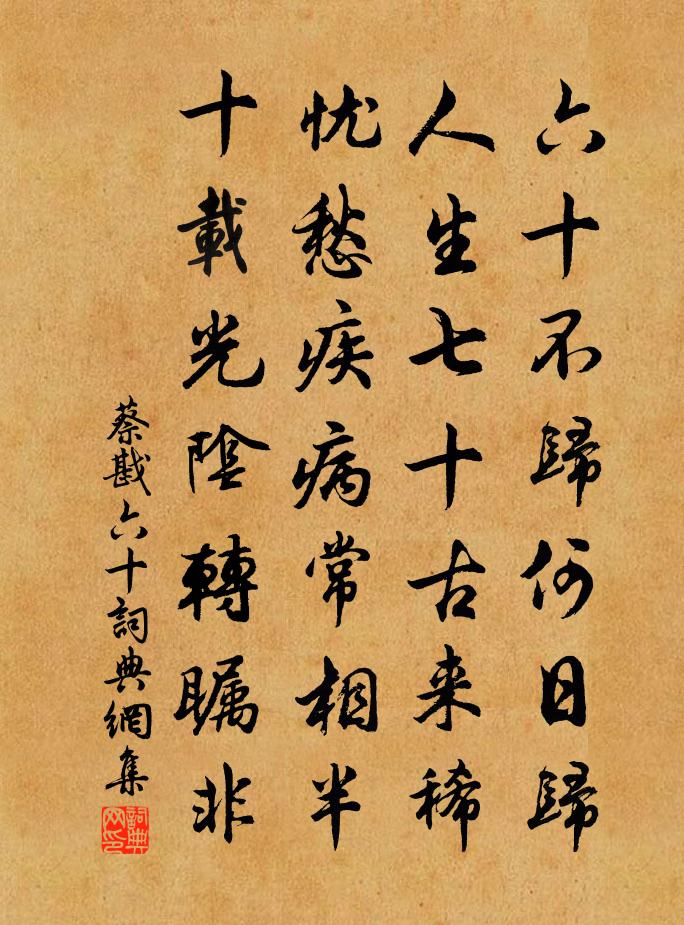 六十不歸何日歸
人生七十古来稀
忧愁疾病常相半
十載光陰轉瞩非
蔡戡六十詞典網集
詞典网印